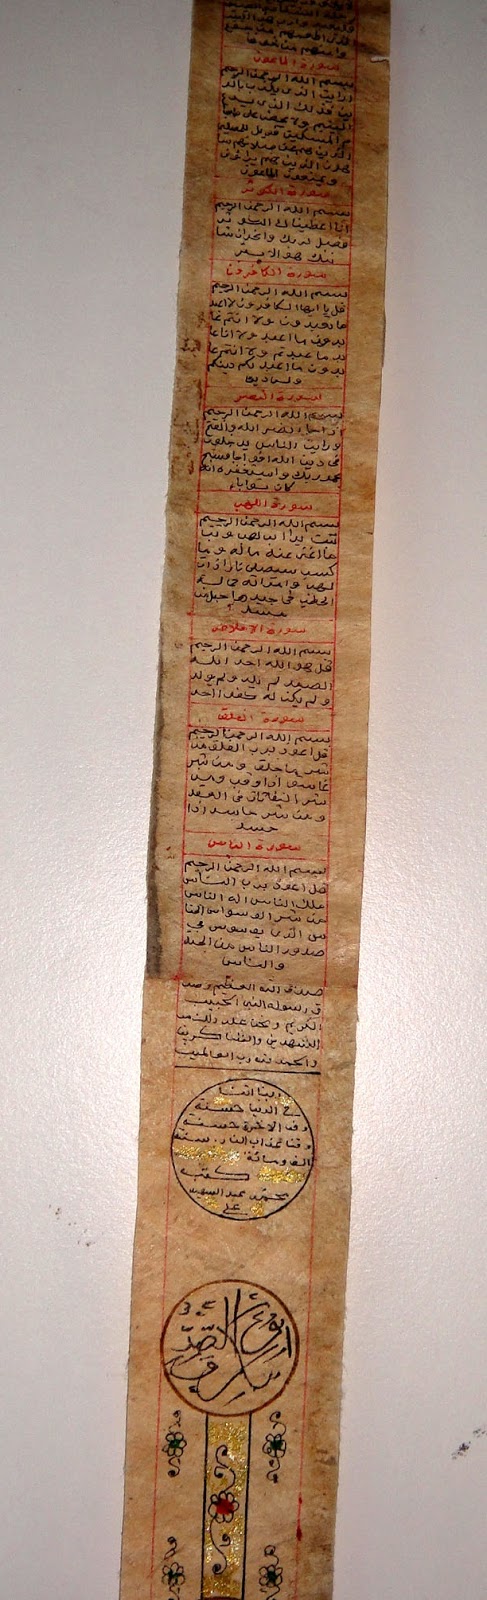 وامنهم من خوف
سورة الماعون
بسم الله الرحمن الرحيم
ارايت الذى يكذب بالد
ين فذلك الذى يدع
اليتيم ولا يحض على طعا
م المسكين فويل للمصلين
الذين هم عن صلاتهم سا
هون الذين هم يراؤن
ويمنعون الماعون
سورة الكوثر
بسم الله الرحمن الرحيم
انا اعطيناك الكوثر
فصل لربك وانحر ان شا
نئك هو الابتر
سورة الكافرون
بسم الله الرحمن الرحيم
قل يا ايها الكافرون لا اعبد
ما تعبدون ولا انتم عا
بدون ما اعبد ولا انا عا
بد ما عبدتم ولا انتم عا
بدون ما اعبد لكم دينكم
ولى دين
سورة النصر
بسم الله الرحمن الرحيم
اذا جاء نصر الله والفتح
ورايت الناس يدخلون
فى دين الله افواجا فسبح
بحمد ربك واستغفره انه
كان توابا
سورة اللهب
بسم الله الرحمن الرحيم
تبت يدا ابى لهب وتب
ما اغنى عنه ماله وما
كسب سيصلى نارا ذات
لهب وامراته حمالة
الحطب فى جيدها حبل من
مسد
سورة الاخلاص
بسم الله الرحمن الرحيم
قل هو الله احد الله
الصمد لم يلد ولم يولد
ولم يكن له كفوا احد
سورة الفلق
بسم الله الرحمن الرحيم
قل اعوذ برب الفلق من
شر ما خلق ومن شر
غاسق اذا وقب ومن
شر النفاثات فى العقد
ومن شر حاسد اذا
حسد
سورة الناس
بسم الله الرحمن الرحيم
قل اعوذ برب الناس
ملك الناس اله الناس
من شر الوسواس الخنا
س الذى يوسوس فى
صدور الناس من الجنة
والناس
صدق الله العظيم وصد
ق رسوله النبى الحبيب
الكريم ونحن على ذلك من
الشهدين والشاكرين
والحمد لله رب العالمين
ربنا اتنا
فى الدنيا حسنة
وفى الاخرة حسنة
وقنا عذاب النار سنة
الف ومائة
كتب
محمد عبد
على